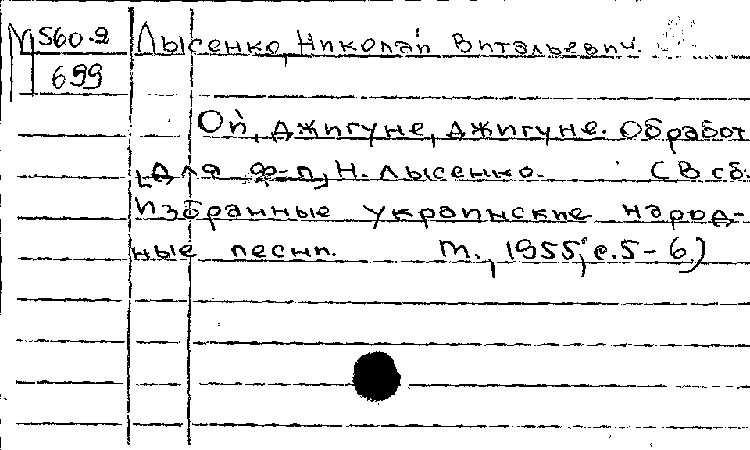 М560.2
699
Лысенко, Николай Витальевич.
Ой, джигуне, джигуне. Обработ
[для ф-п] Н. Лысенко. (В сб.
Избранные украинские народ-
ные песни. М., 1955, с. 5-6.)